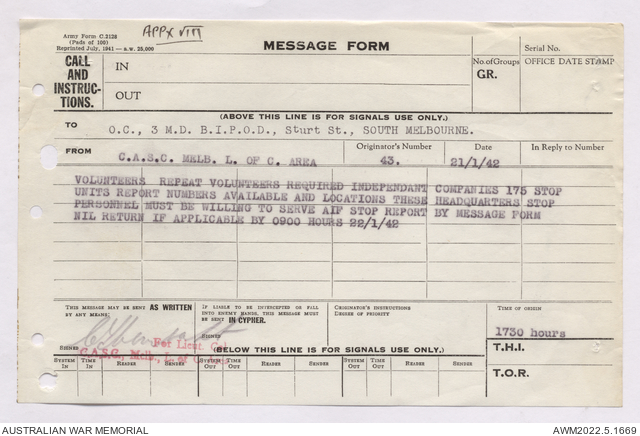 Army Form C.2128
(Pads of 100)
Reprinted July, 1941 — s.w. 25,000
APPX VIII
MESSAGE FORM
Serial No.
CALL AND INSTRUC-TIONS.
IN
OUT
No. of Groups
GR.
OFFICE DATE STAMP
(ABOVE THIS LINE IS FOR SIGNALS USE ONLY.)
TO O.C., 3 M.D. B.I.P.O.D., Sturt St., SOUTH MELBOURNE.
FROM C.A.S.C. MELB. L. OF C. AREA
Originator's Number
43.
Date
21/1/42
In Reply to Number
VOLUNTEERS REPEAT VOLUNTEERS REQUIRED INDEPENDANT COMPANIES 175 STOP
UNITS REPORT NUMBERS AVAILABLE AND LOCATIONS THESE HEADQUARTERS STOP
PERSONNEL MUST BE WILLING TO SERVE AIF STOP REPORT BY MESSAGE FORM
NIL RETURN IF APPLICABLE BY 0900 HOURS 22/1/42
THIS MESSAGE MAY BE SENT AS WRITTEN
BY ANY MEANS:
SIGNED
For Lieut. Col.
C.A.S.C., Melb., L. of C. Area
IF LIABLE TO BE INTERCEPTED OR FALL
INTO ENEMY HANDS, THIS MESSAGE MUST
BE SENT IN CYPHER.
SIGNED
ORIGINATOR'S INSTRUCTIONS
DEGREE OF PRIORITY
TIME OF ORIGIN
1730 hours
(BELOW THIS LINE IS FOR SIGNALS USE ONLY.)
T.H.I.
T.O.R.
SYSTEM IN
TIME IN
READER
SENDER
SYSTEM OUT
TIME OUT
READER
SENDER
SYSTEM OUT
TIME OUT
READER
SENDER
AUSTRALIAN WAR MEMORIAL
AWM2022.5.1669